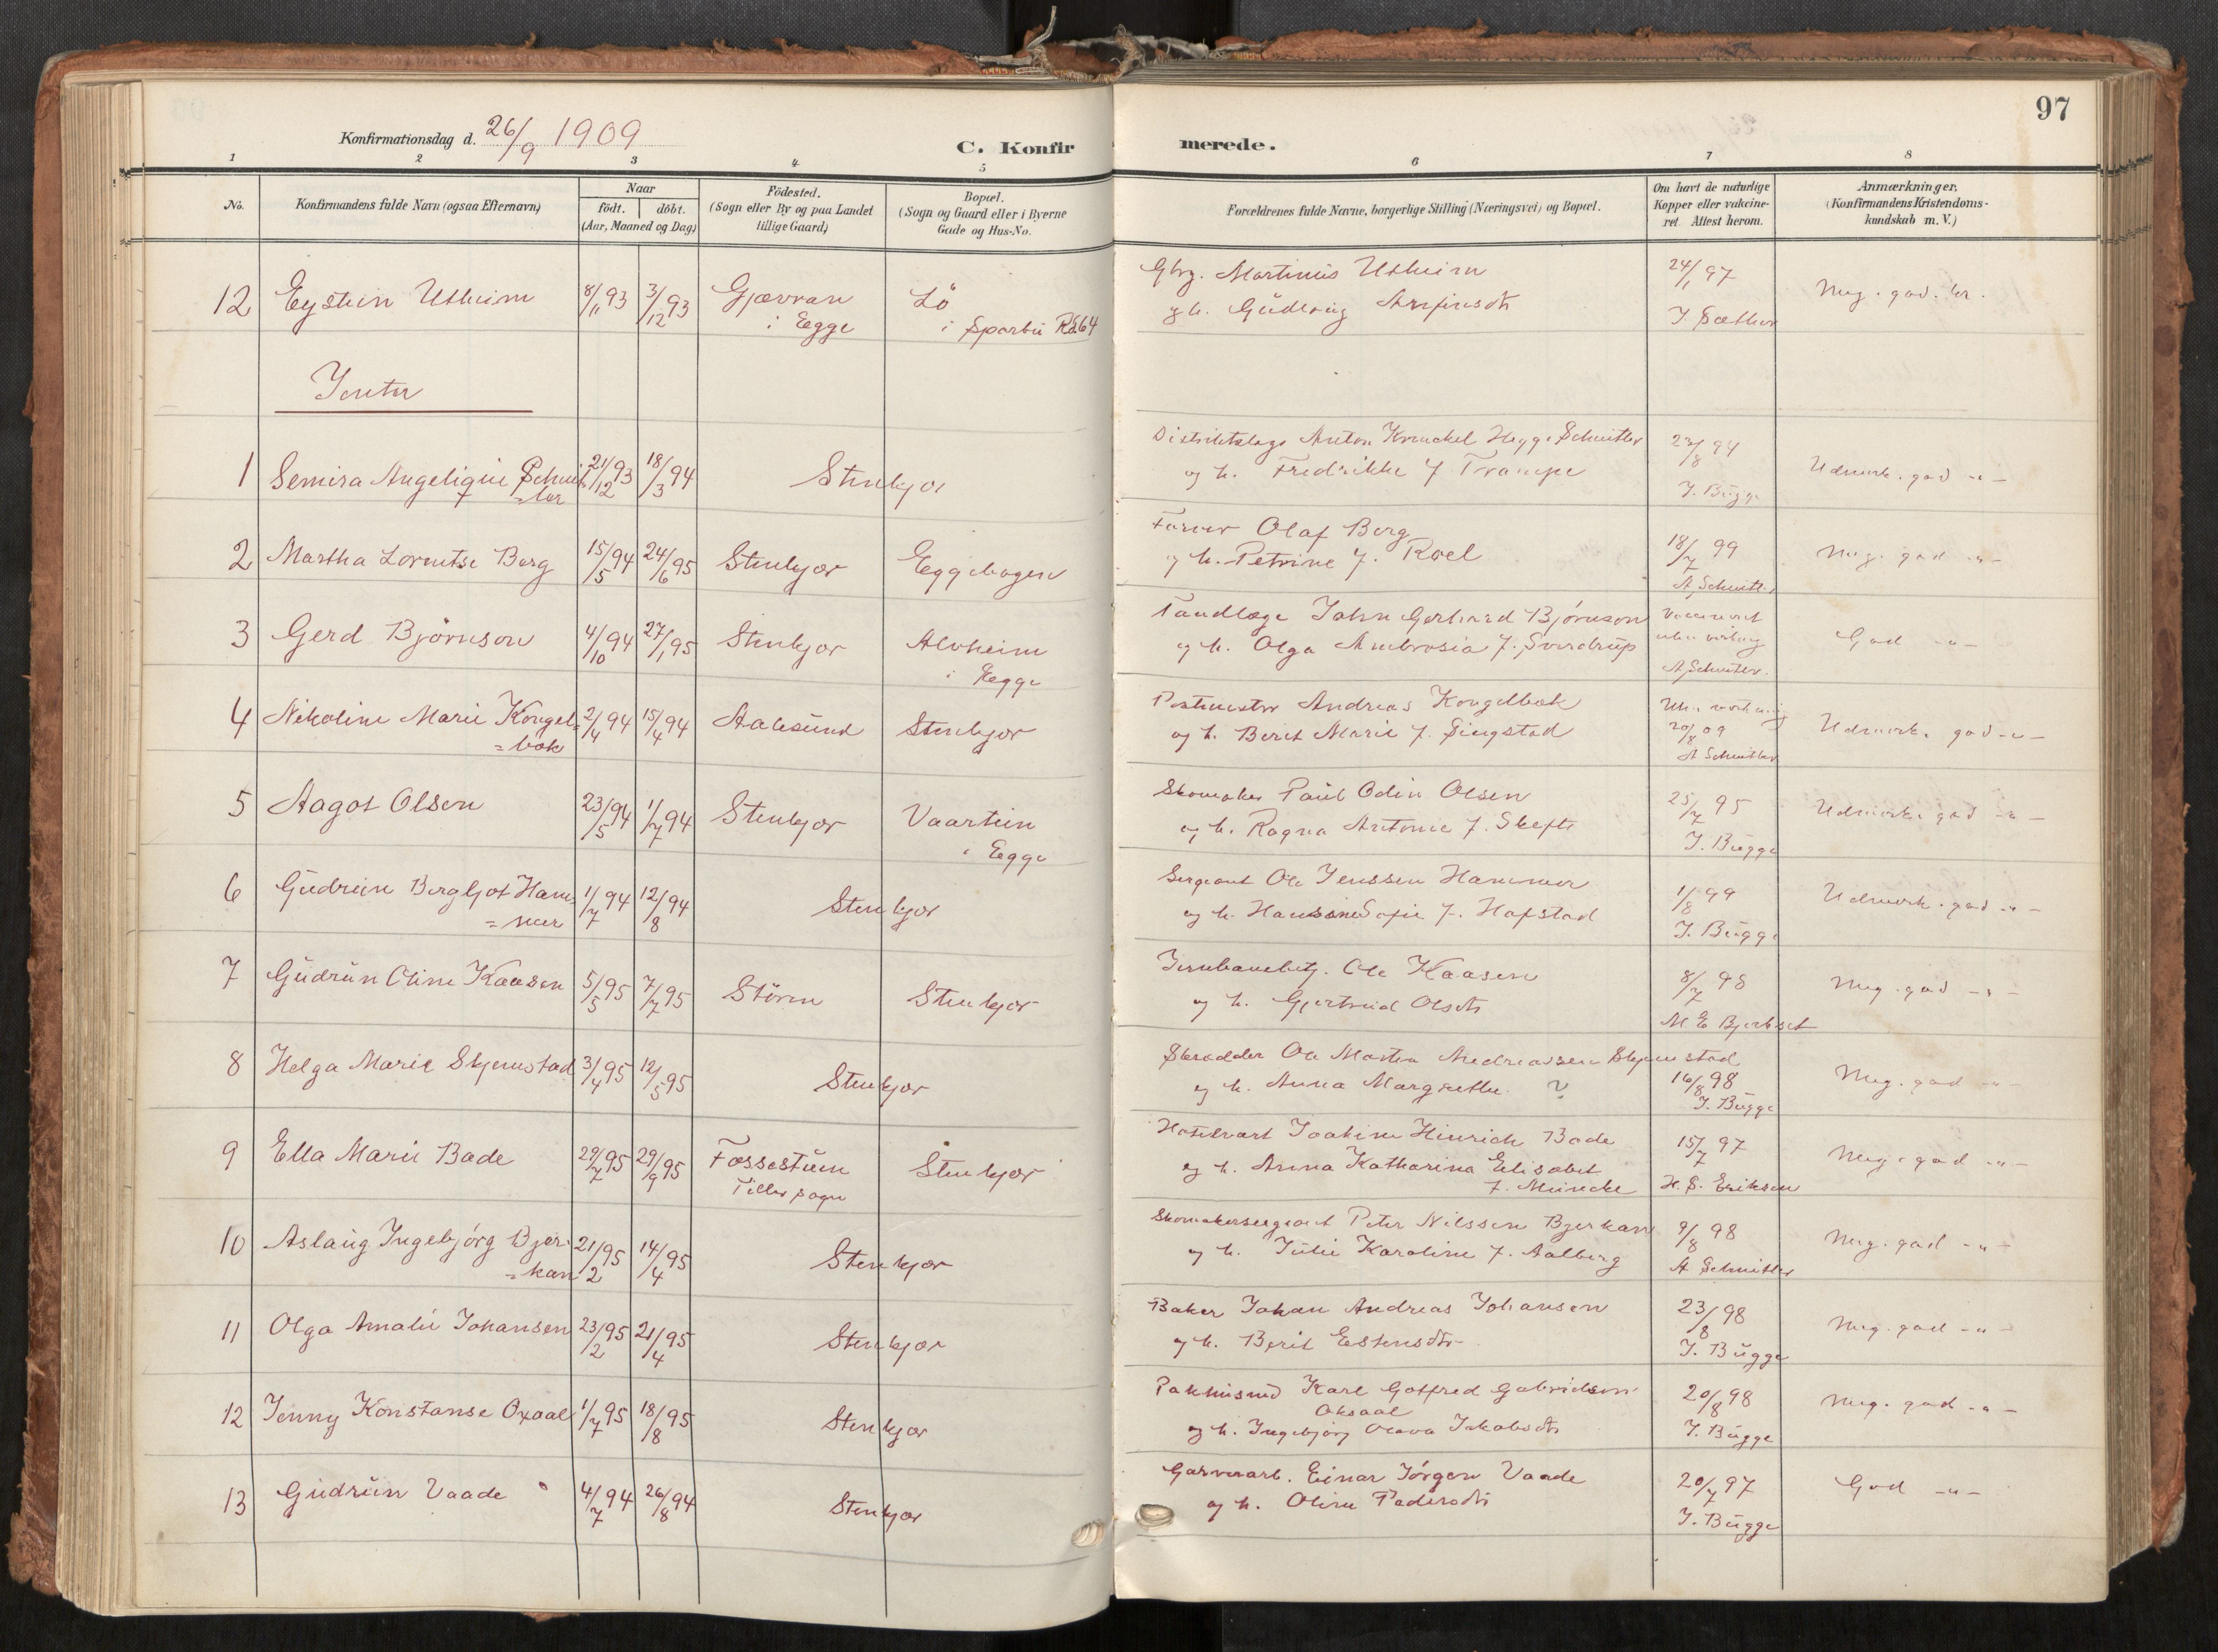 97
Konfirmationsdag d. 26/9 1909
C. Konfirmerede.
1 2 3 4 5 6 7 8
No.
Konfirmandens fulde Navn (ogsaa Efternavn)
Naar
födt. | döbt.
(Aar, Maaned og Dag)
Födested.
(Sogn eller By og paa Landet
tillige Gaard)
Bopæl.
(Sogn og Gaard eller i Byerne
Gade og Hus-No.
Forældrenes fulde Navne, borgerlige Stilling (Næringsvei) og Bopæl.
Om havt de naturlige
Kopper eller vakcine-
ret. Attest herom.
Anmærkninger.
(Konfirmandens Kristendoms-
kundskab m. V.)
12 Eystein Utheim 8/11 93 3/12 93 Gjævran Lö Gbrg. Martinius Utheim 24/1 97 Meg. god. kr.
i Egge i Sparbu og h. Gudlaug Arnfinsdtr J. Sæther
Jenter
1 Semira Angelique Schnit= 21/12 93 18/3 94 Stenkjær Distriktslæge Anton Hegge Schnitler 23/8 94 Udmerk. god -"-
=ler og h. Fredrikke f. Trampe J. Bugge
2 Martha Lorentse Berg 15/5 94 24/6 95 Stenkjær Eggebogen Farver Olaf Berg 18/7 99 Meg. god -"-
og h. Petrine f. Roel A Schnitl.
3 Gerd Björnson 4/10 94 27/1 95 Stenkjær Alvheim Tandlæge John Gerhard Björnson God -"-
i Egge og h. Olga Ambrosia f. Sverdrup A Schnitler.
4 Nikoline Marie Kongel= 2/4 94 15/4 94 Aalesund Stenkjær Postmester Andreas Kongelbok Uten virkning Udmerk. god -"-
=bok og h. Berit Marie f. Singstad 20/8 09
A Schnitler
5 Aagot Olsen 23/5 94 1/7 94 Stenkjær Vaartun Skomaker Paul Odin Olsen 25/7 95 Udmerk. god -"-
i Egge og h. Ragna Antonie f. Skefte J. Bugge
6 Gudrun Bergljot Ham= 1/7 94 12/8 94 Stenkjær Sergeant Ole Jenssen Hammer 1/8 99 Udmerk. god -"-
=mer og h. Hansine Sofie f. Hafstad J. Bugge
7 Gudrun Oline Kaasen 5/5 95 7/7 95 Stören Stenkjær Jernbanebetj. Ole Kaasen 8/7 98 Meg. god -"-
og h. Gjertrud Olsdtr M E Bjerkset
8 Helga Marie Skjemstad 3/4 95 12/5 95 Stenkjær Skrædder Ole Martin Andreassen Skjemstad 16/8 98 Meg. god -"-
og h. Anna Margrethe ? J. Bugge
9 Ella Marie Bade 29/7 95 29/9 95 Fossestuen Stenkjær Hotelvært Joakim Hinrich Bade 15/7 97 Meg. god -"-
Tiller sogn og h. Anna Katharina Elisabet
f. Meinecke H. S. Eriksen
10 Aslaug Ingebjörg Bjer= 21/2 95 14/4 95 Stenkjær Skomakersergeant Peter Nilssen Bjerkan 9/8 98 Meg. god -"-
=kan og h. Julie Karoline f. Aalberg A Schnitler
11 Olga Amalie Johansen 23/2 95 21/4 95 Stenkjær Baker Johan Andreas Johansen 23/8 98 Meg. god -"-
og h. Berit Estensdtr J. Bugge
12 Jenny Konstanse Oxaal 1/7 95 18/8 95 Stenkjær Pakhusmd Karl Gotfred Gabrielsen 20/8 98 Meg. god -"-
Oksaal
og h. Ingebjörg Olava Jakobsdtr J. Bugge
13 Gudrun Vaade 4/7 94 26/8 94 Stenkjær Garverarb. Einar Jörgen Vaade 20/7 97 God -"-
og h. Oline Pedersdtr J. Bugge